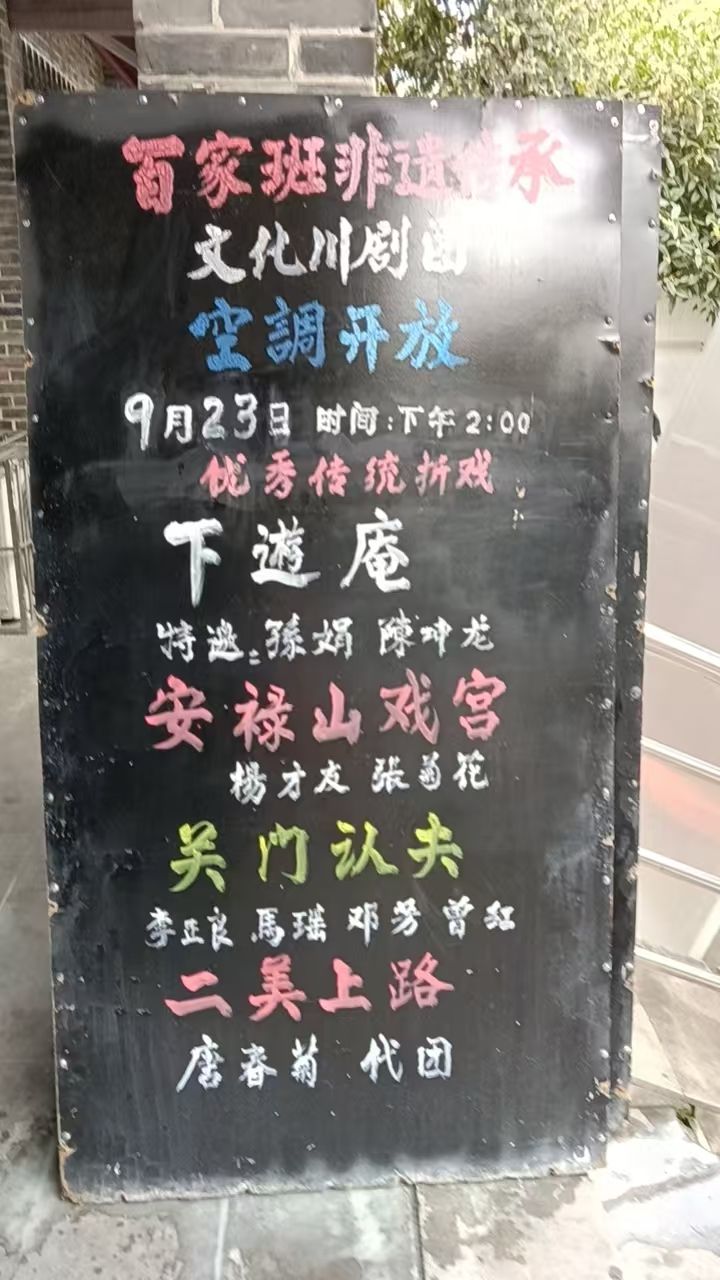 百家班非遗传承
文化川剧团
空調开放
9月23日 时间:下午2:00
优秀传统折戏
下遊庵
特邀:孫娟 陳坤龙
安禄山戏宫
楊才友 張菊花
关门认夫
李正良 馬瑶 邓芳 曾红
二美上路
唐春菊 代团